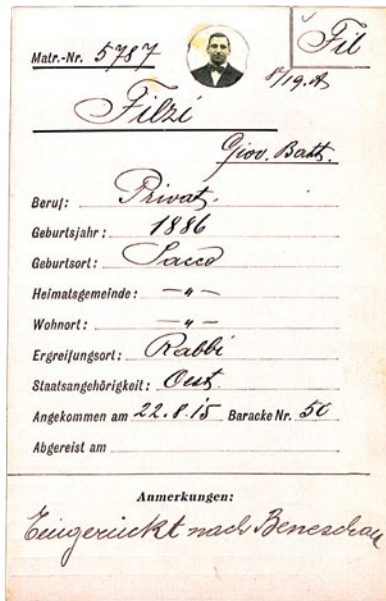 Fil
Matr.-Nr. 5787
8/19. A
Filzi
Giov. Batt.
Beruf: Privat.
Geburtsjahr: 1886
Geburtsort: Sacco
Heimatsgemeinde: — " —
Wohnort: — " —
Ergreifungsort: Rabbi
Staatsangehörigkeit: Oest.
Angekommen am 22.8.15 Baracke Nr. 50
Abgereist am
Anmerkungen:
Eingerückt nach Beneschau